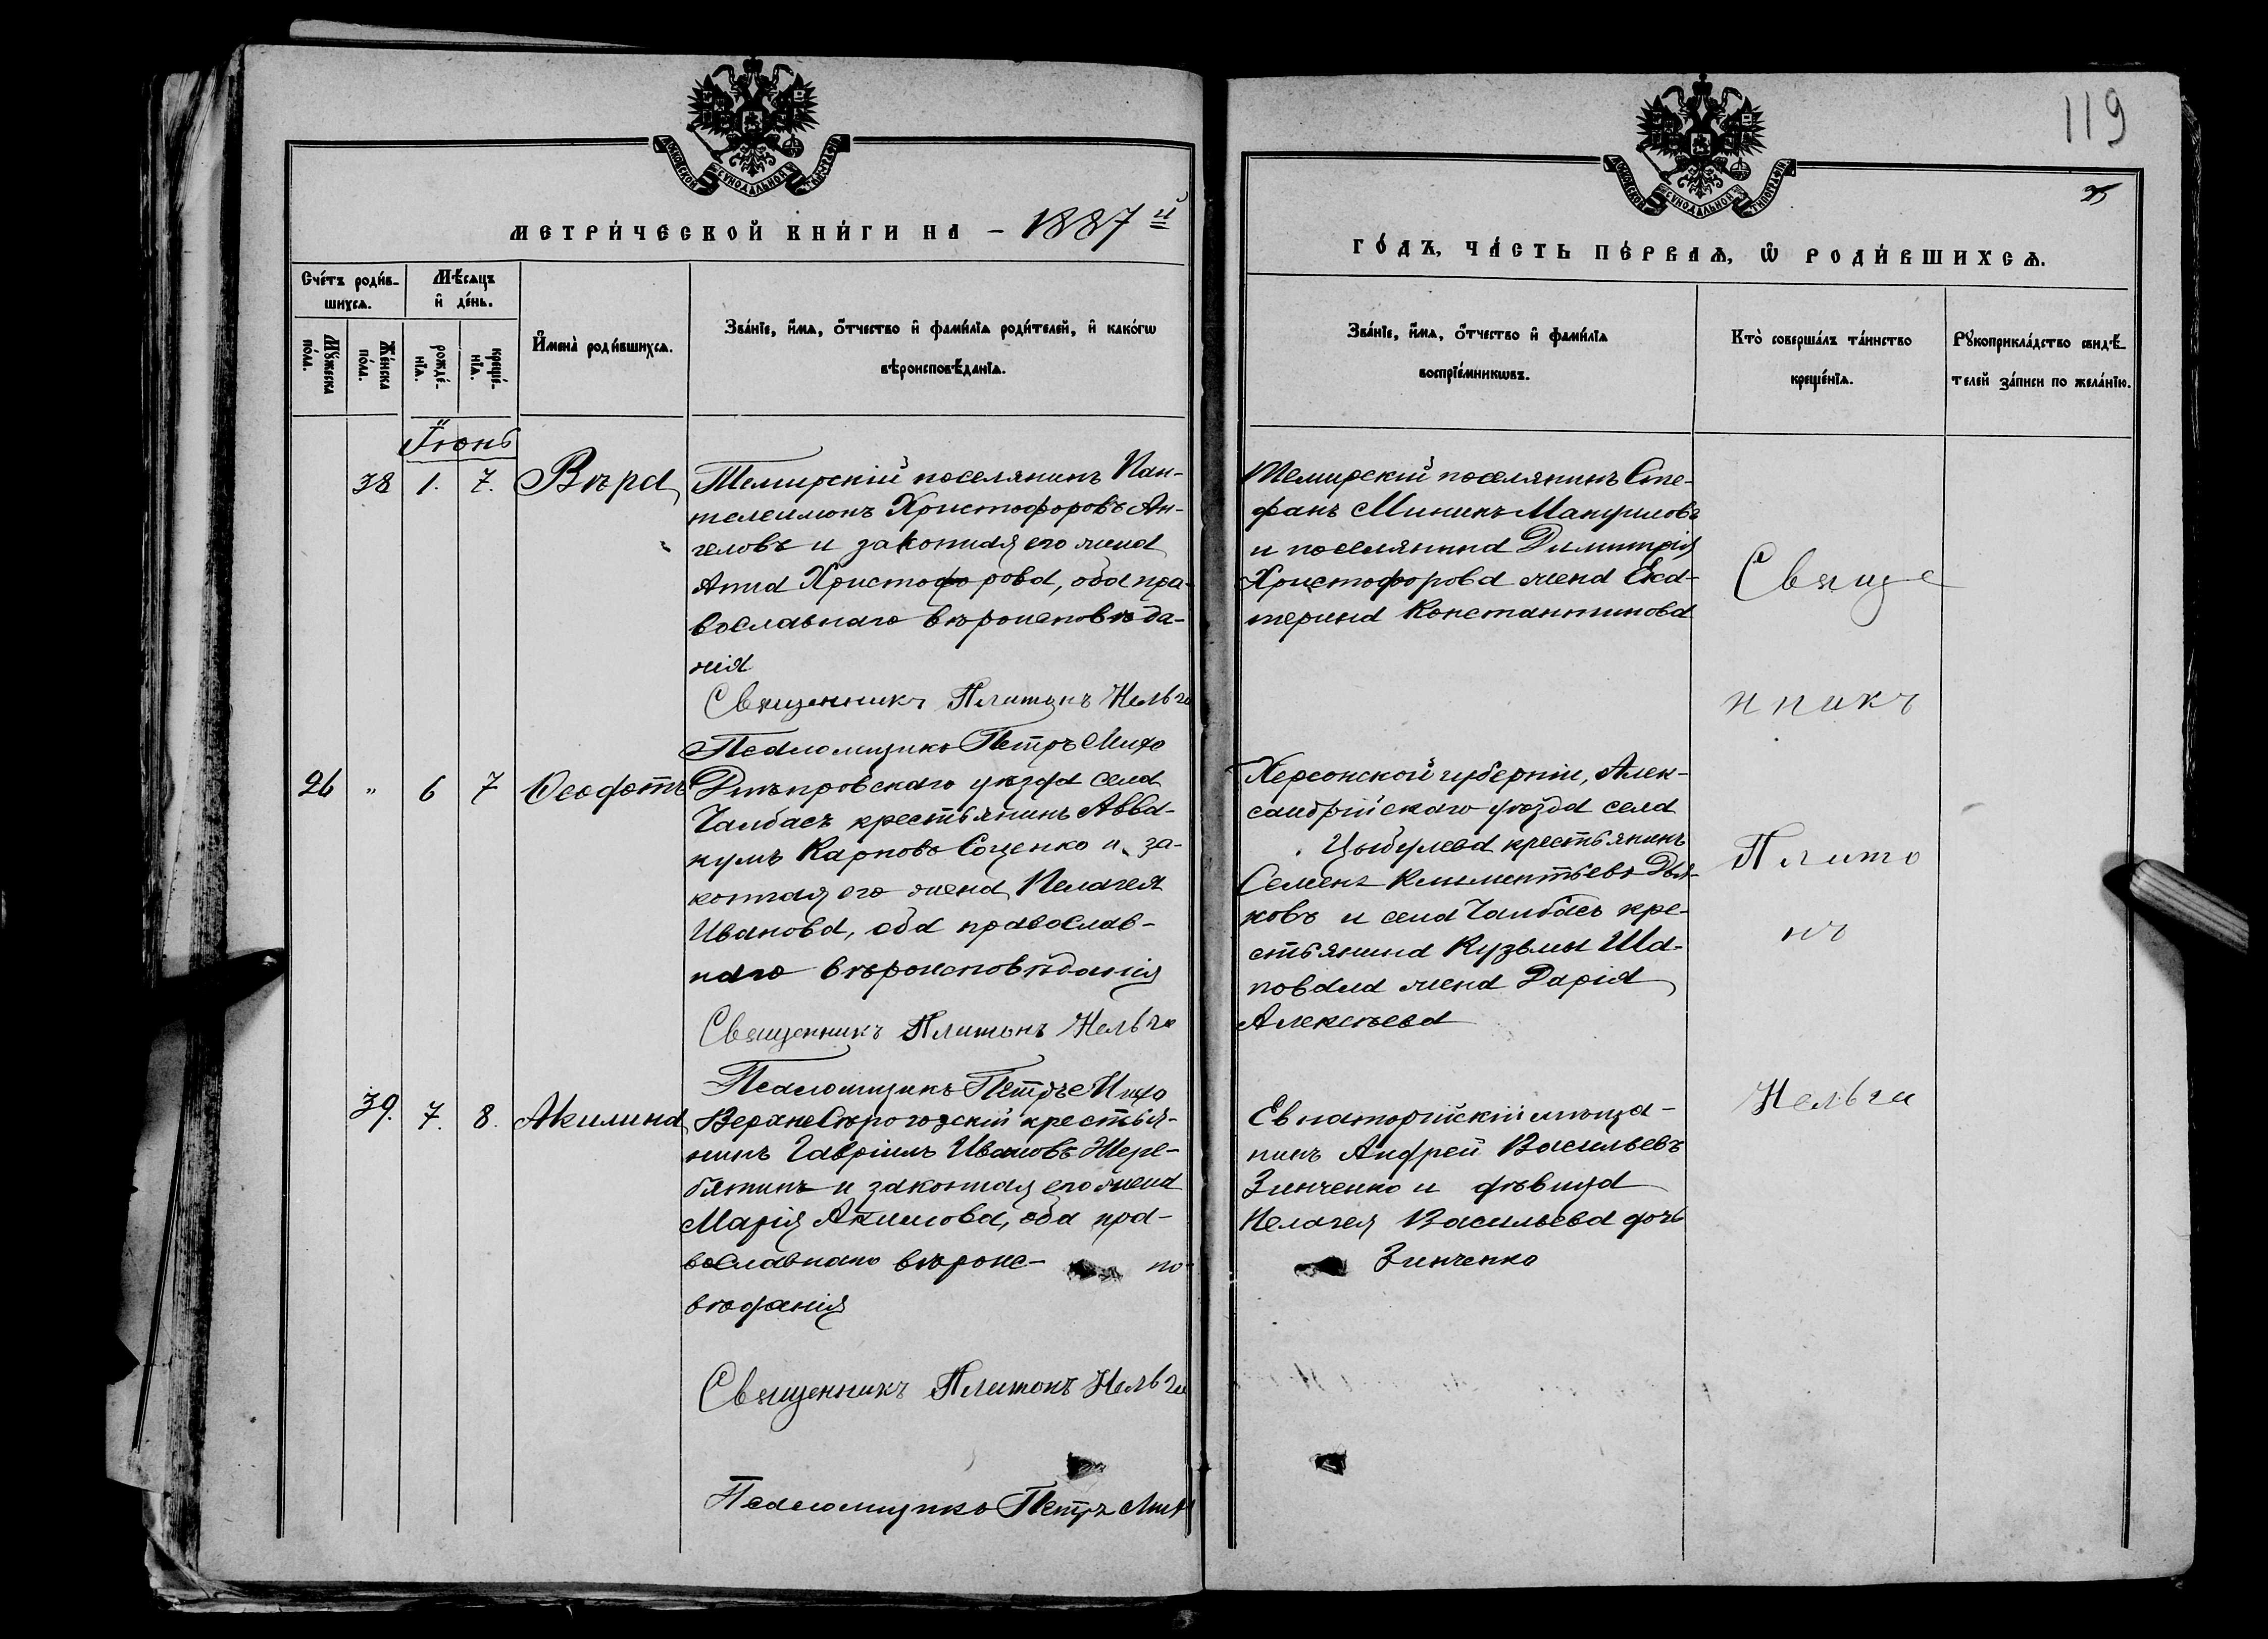 119
МОСКОВСКОЙ СѴНОДАЛЬНОЙ ТИПОГРАФІИ
МОСКОВСКОЙ СѴНОДАЛЬНОЙ ТИПОГРАФІИ
МЕТРИ́ЧЕСКОЙ КНИ́ГИ НА – 1887й
Сче́тъ роди́в-
шихсѧ.
Мѣ́сѧцъ
и҆ де́нь.
Мꙋ́жеска
по́ла.
Же́нска
по́ла.
рожде́-
нїѧ.
креще́-
нїѧ.
И҆мена̀ роди́вшихсѧ.
Зва́нїе, и҆́мѧ, ѻ҆́тчество и҆ фами́лїѧ роди́телей, и҆ како́гѡ
вѣроисповѣ́данїѧ.
Іюнь
38 1. 7. Вѣра
Темирскій поселянинъ Пан-
телеимонъ Христофоровъ Ан-
геловъ и законная его жена
Анна Христофорова, оба пра-
вославнаго вѣроисповѣда-
нія
Священникъ Платонъ Нельга
Псаломщикъ Петръ
26 " 6 7 Ѳеодотъ
Днѣпровскаго уѣзда села
Чалбасъ крестьянинъ Авва-
кумъ Карповъ Соценко и за-
конная его жена Пелагея
Иванова, оба православ-
наго вѣроисповѣданія
Священникъ Платонъ Нельга
Псаломщикъ Петръ
39. 7. 8. Акилина
Верхне Сѣрогозскій крестья-
нинъ Гавріилъ Ивановъ Жере-
бятинъ и законная его жена
Марія Акимова, оба пра-
вославнаго вѣроис- по-
вѣданія
Священникъ Платонъ Нельга
Псаломщикъ Петръ
ГО́ДЪ, ЧА́СТЬ ПЕ́РВАѦ, Ѡ҆ РОДИ́ВШИХСѦ.
Зва́нїе, и҆́мѧ, ѻ҆́тчество и҆ фами́лїѧ
воспрїе́мникѡвъ.
Кто̀ соверша́лъ та́инство
креще́нїѧ.
Рꙋкоприкла́дство свидѣ́-
телей за́писи по жела́нїю.
Темирскій поселянинъ Сте-
фанъ Мининъ
и поселянина Димитрія
Христофорова жена Ека-
терина Константинова
Херсонской губерніи, Алек-
сандрійскаго уѣзда села
Цыбулева крестьянинъ
Семенъ Климентьевъ Дья-
ковъ и села Чалбасъ кре-
стьянина Кузьмы Ша-
повала жена Дарія
Алексѣева
Евпаторійскій мѣща-
нинъ Андрей Васильевъ
Зинченко и дѣвица
Пелагея Васильева дочь
Зинченко
Свяще
нникъ
Плато
нъ
Нельга